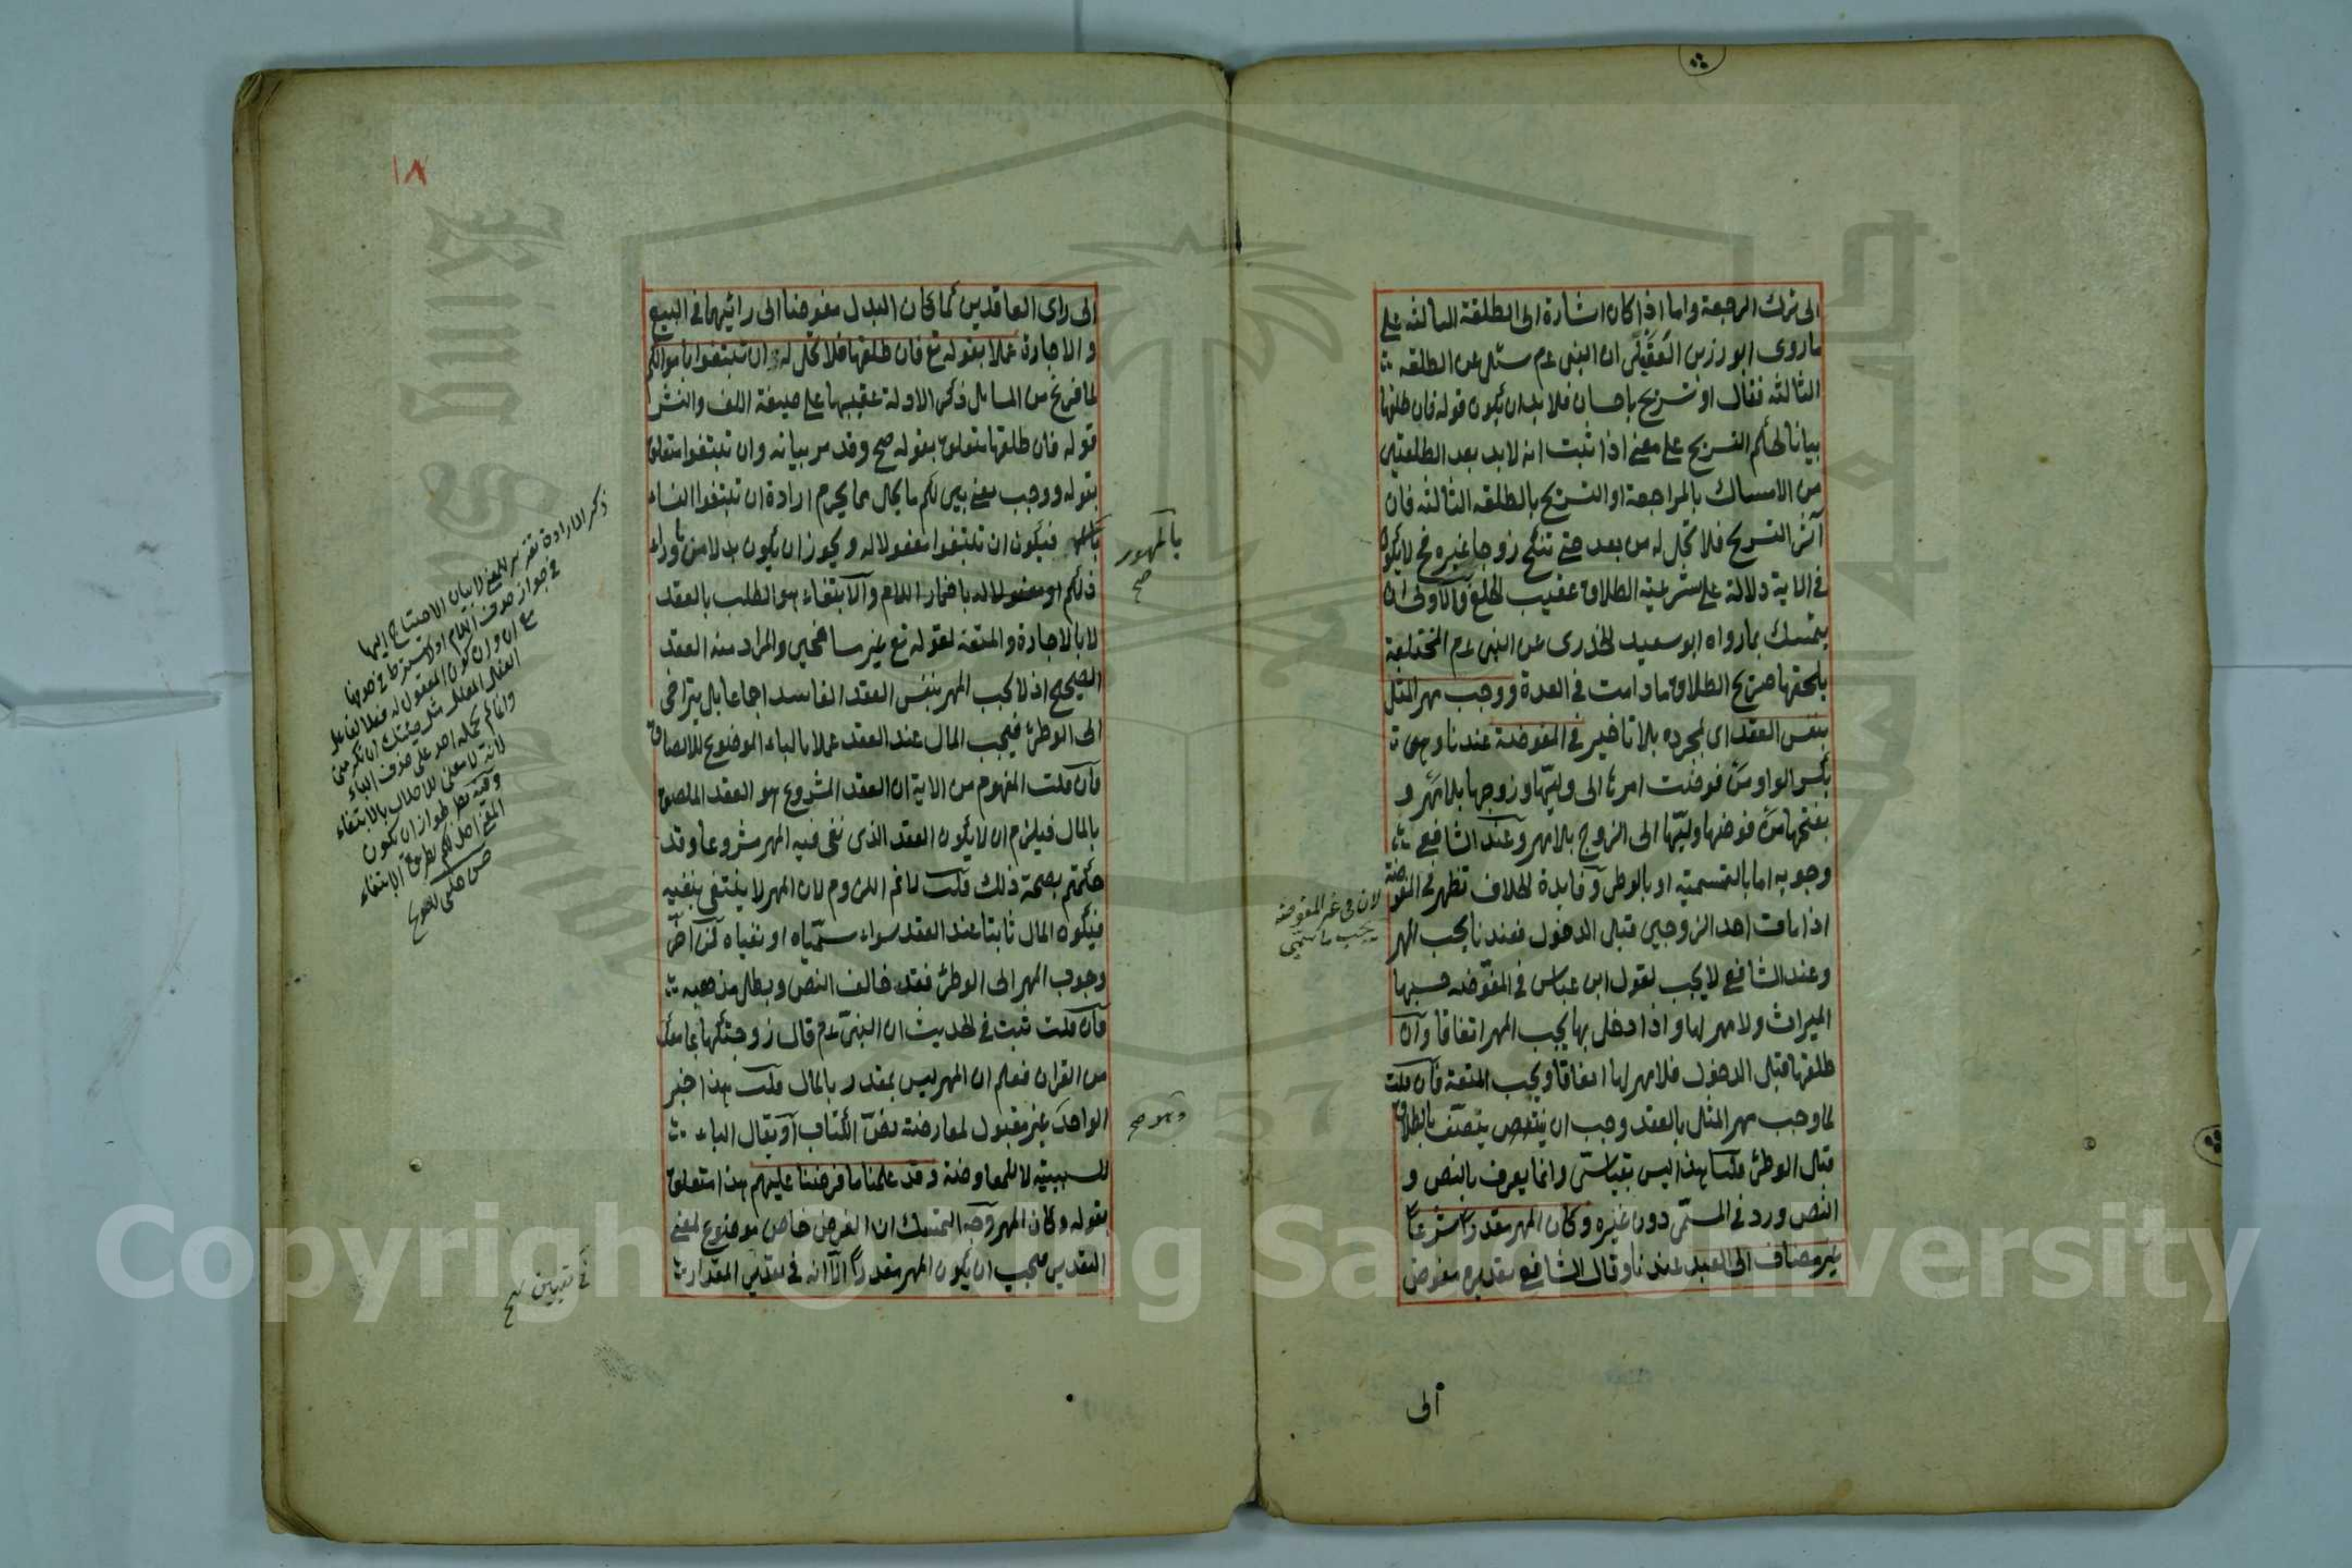 الى ترك الرجعة واما اذا كان اشارة الى الطلقة الثالثة على
ما روى ابو رزين العقيلى ان النبى عم سئل عن الطلقة
الثالثة فقال او تسريح باحسان فلا بد ان يكون قوله فان طلقها
بيانا لحكم التسريح على معنى اذا ثبت انه لا بد بعد الطلقتين
من الامساك بالمراجعة او التسريح بالطلقة الثالثة فان
آثر التسريح فلا تحل له من بعد حتى تنكح زوجا غيره فح لا يكون
فى الاية دلالة على شرعية الطلاق عقيب الخلع فالاولى ان
يتمسك بما رواه ابو سعيد الخدرى عن النبى عم المختلعة
يلحقها صريح الطلاق ما دامت فى العدة ووجب مهر المثل
بنفس العقد اى بمجرده بلا تاخير فى المفوضة عندنا وهى
بكسر الواو من فوضت امرها الى وليها وزوجها بلا مهر و
بفتحها من فوضها وليها الى الزوج بلا مهر وعند الشافعى
وجوبه اما بالتسمية او بالوطئ وفايدة الخلاف تظهر فى المفوضة
لان فى غير المفوضة
يجب ما سمى
اذا مات احد الزوجين قبل الدخول فعندنا يجب المهر
وعند الشافعى لا يجب لقول ابن عباس فى المفوضة حسبها
الميراث ولا مهر لها واذا دخل بها يجب المهر اتفاقا وان
طلقها قبل الدخول فلا مهر لها اتفاقا ويجب المتعة فان قلت
لما وجب مهر المثل بالعقد وجب ان يتنصف بالطلاق
قبل الوطئ قلنا هذا ليس بقياسى وانما يعرف بالنص و
النص ورد فى المسمى دون غيره وكان المهر مقدرا شرعا
غير مضاف الى العبد عندنا وقال الشافعى تقديره مفوض
الى
١٨
الى راى العاقدين كما كان البدل مفوضا الى رائيهما فى البيع
والاجارة عملا بقوله تع فان طلقها فلا تحل له ان تبتغوا باموالكم
لما فرغ من المسايل ذكر الادلة عقيبها على صيغة اللف والنشر
قوله فان طلقها متعلق بقوله صح وقد مر بيانه وان تبتغوا متعلق
بقوله ووجب معنى بين لكم ما يحل مما يحرم ارادة ان تبتغوا النساء
فيكون ان تبتغوا مفعولا له ويجوز ان يكون بدلا من ما وراء
بالمهور
صح
ذلكم او مفعولا له باضمار اللام والابتغاء هو الطلب بالعقد
لا بالاجارة والمتعة لقوله تع غير مسافحين والمراد منه العقد
الصحيح اذ لا يجب المهر بنفس العقد الفاسد اجماعا بل يتراخى
الى الوطئ فيجب المال عند العقد عملا بالباء الموضوع للالصاق
فان قلت المفهوم من الاية ان العقد المشروع هو العقد الملصق
بالمال فيلزم ان لا يكون العقد الذى نفى فيه المهر مشروعا وقد
حكمتم بصحة ذلك قلت لا نم اللزوم لان المهر لا ينتفى بنفيه
فيكون المال ثابتا عند العقد سواء سمياه او نفياه لمن اخر
وجوب المهر الى الوطئ فقد خالف النص وبطل مذهبه
فان قلت ثبت فى الحديث ان النبى عم قال زوجتكها بما معك
من القران فعلم ان المهر ليس بمقدر بالمال قلت هذا خبر
الواحد غير مقبول لمعارضة نص الكتاب او يقال الباء
للسببية لا للمعاوضة وقد علمنا ما فرضنا عليهم هذا متعلق
بقوله وكان المهر وجه التمسك ان الفرض خاص موضوع لمعنى
التقدير فيجب ان يكون المهر مقدرا الا انه فى تعيين المقدار
ذكر الارادة تقدير للمعنى لا بيان الاحتياج اليها
فى جواز حذف اللام اذ لا يشترط فى حذفها
مع ان وان كون المفعول له فعلا لفاعل
الفعل المعلل مثل جئتك ان تكرمنى
وانما لم يحمله احد على حذف الباء
لانه لا معنى للاحلال بالابتغاء
وفيه نظر لجواز ان يكون
المعنى احل لكم بطريق الابتغاء
حسن چلبى تلويح